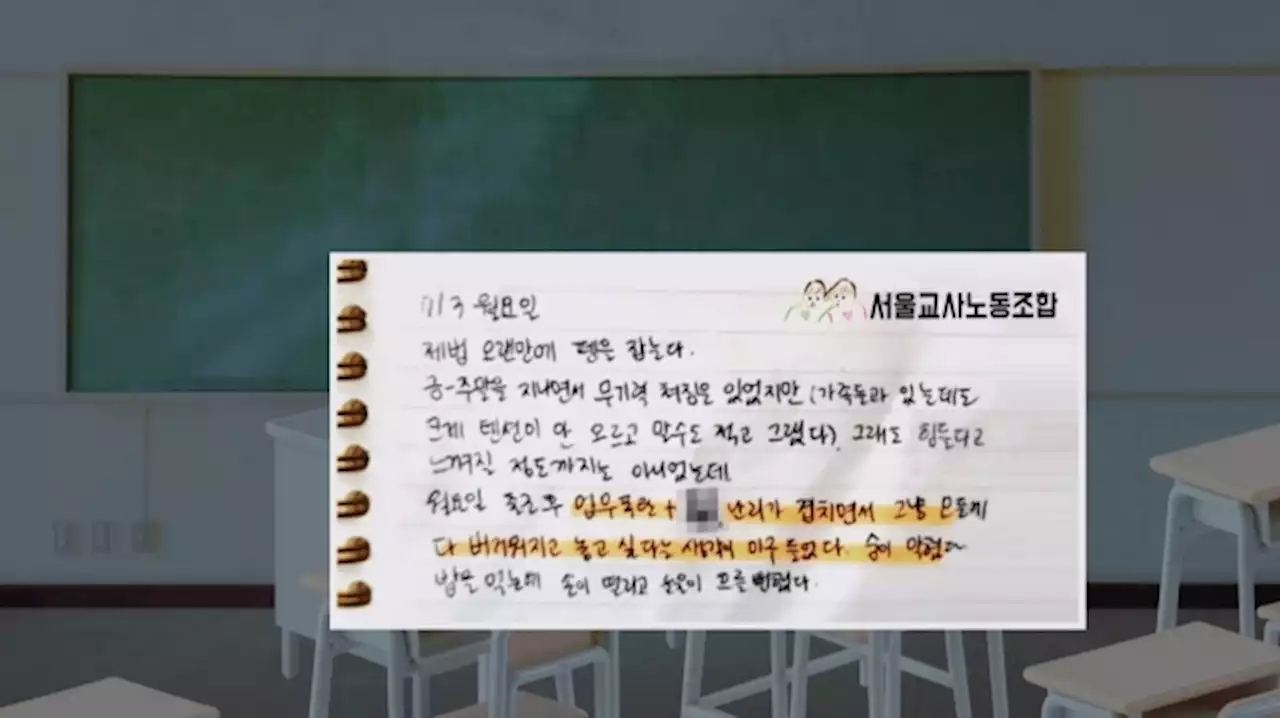 7/3 월요일
서울교사노동조합
제법 오랜만에 펜을 잡는다.
금-주말을 지나면서 무기력 처짐은 있었지만 (가족들과 있는데도
크게 텐션이 안 오르고 말수도 적고 그랬다), 그래도 힘들다고
느껴질 정도까지는 아니었는데
월요일 출근 후 업무폭탄 + 난리가 겹치면서 그냥 모든게
다 버거워지고 놓고 싶다는 생각이 마구 들었다. 숨이 막혔다
밥을 먹는데 손이 떨리고 눈물이 흐를 뻔했다.